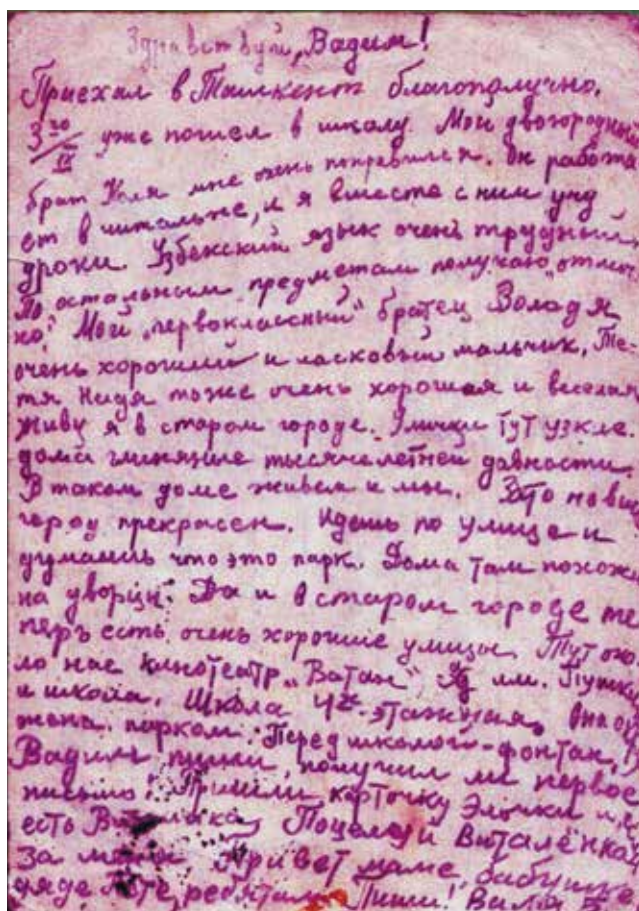 Здравствуй, Вадим!
Приехал в Ташкент благополучно.
3го/IX уже пошел в школу. Мой двоюродный
брат Коля мне очень понравился. Он работа
ет в читальне, и я вместе с ним учу
уроки. Узбекский язык очень трудный.
По остальным предметам получаю „отлич
но“. Мой „первоклассный“ братец Володя
очень хороший и ласковый мальчик, Те-
тя Надя тоже очень хорошая и веселая
Живу я в старом городе. Улички тут узкие.
дома глиняные тысячелетней давности.
В таком доме живем и мы. Зато новый
город прекрасен. Идешь по улице и
думаешь что это парк. Дома там похожи
на дворцы. Да и в старом городе те
перь есть очень хорошие улицы. Тут око
ло нас кинотеатр „Ватан“, им. Пушк
и школа. Школа 4х-этажная, она ок
жена парком. Перед школой-фонтан,
Вадиль пиши, получил ли первое
письмо. Пришли карточку Элочки и, е
есть Виталика. Поцелуй Виталёнка
за меня. Привет маме, бабушке,
дяде Пете, ребятам. Пиши! Валя